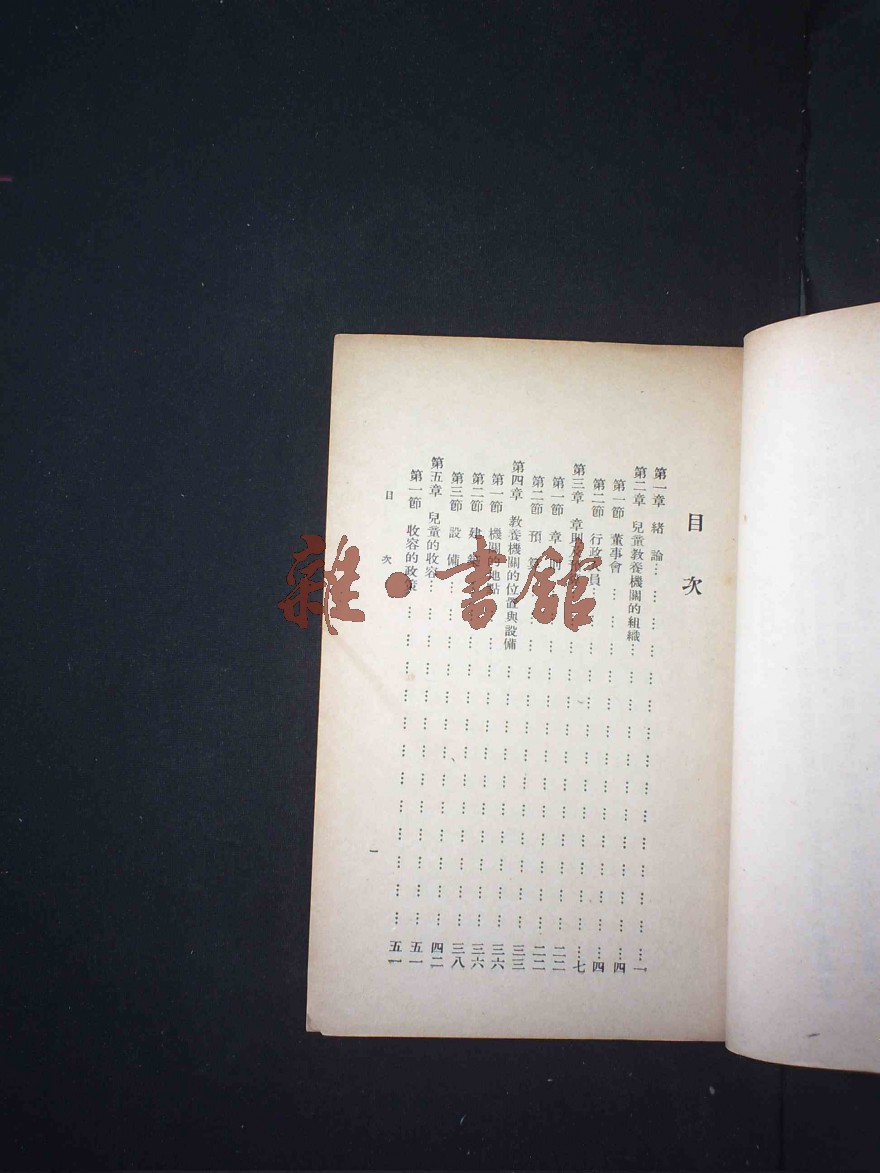 目 次
第一章 緒論…………一
第二章 兒童教養機關的組織…………四
第一節 董事會…………四
第二節 行政 員…………七
第三章 章則…………二二
第一節 章則…………二二
第二節 預算…………三三
第四章 教養機關的位置與設備…………三六
第一節 機關的地點…………三六
第二節 建築…………三八
第三節 設備…………四二
第五章 兒童的收容…………五一
第一節 收容的政策…………五一
目 次
一
雜·書館